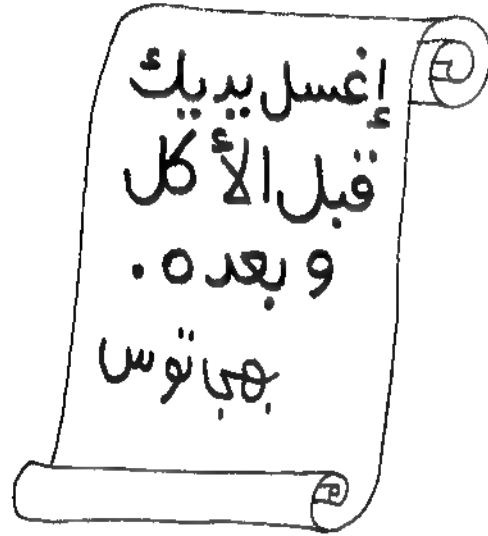 إغسل يديك
قبل الأكل
و بعده .
بهجاتوس